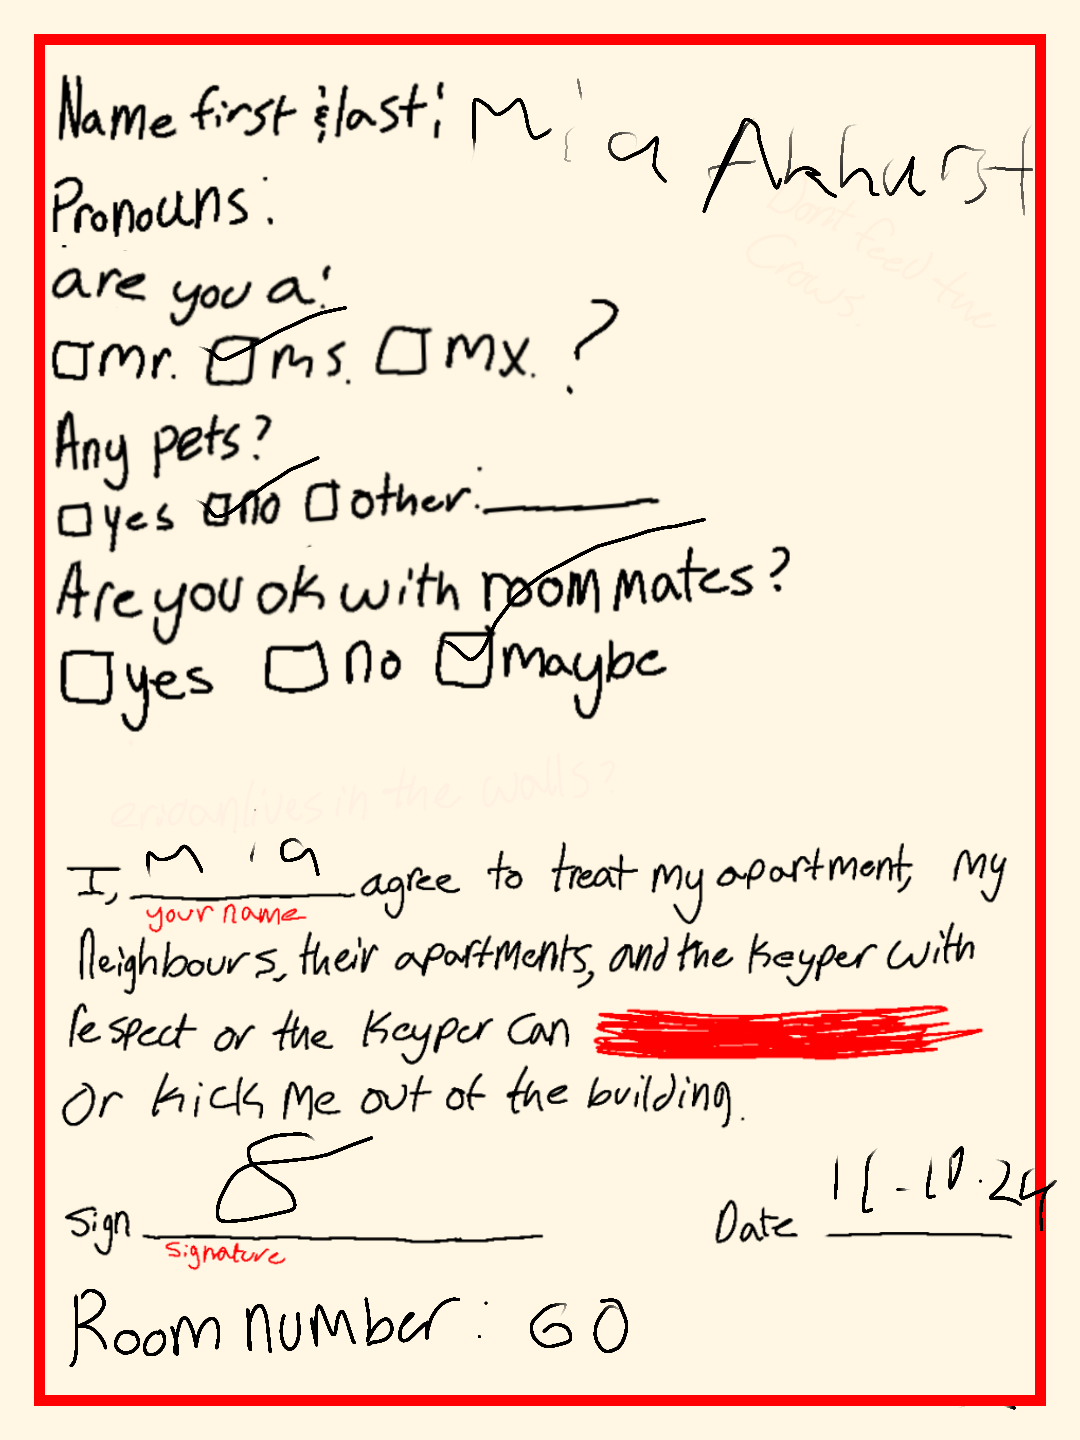 Name first & last: Mia Akhurst
Pronouns:
Dont feed the
Crows.
are you a:
mr. ms. mx. ?
Any pets?
yes no other:
Are you ok with roommates?
yes no maybe
lives in the walls?
I, Mia agree to treat my apartment, my
your name
Neighbours, their apartments, and the Keyper with
respect or the Keyper Can
Or kick Me out of the building.
Sign 
signature
Date 11-10.24
Room number: 60